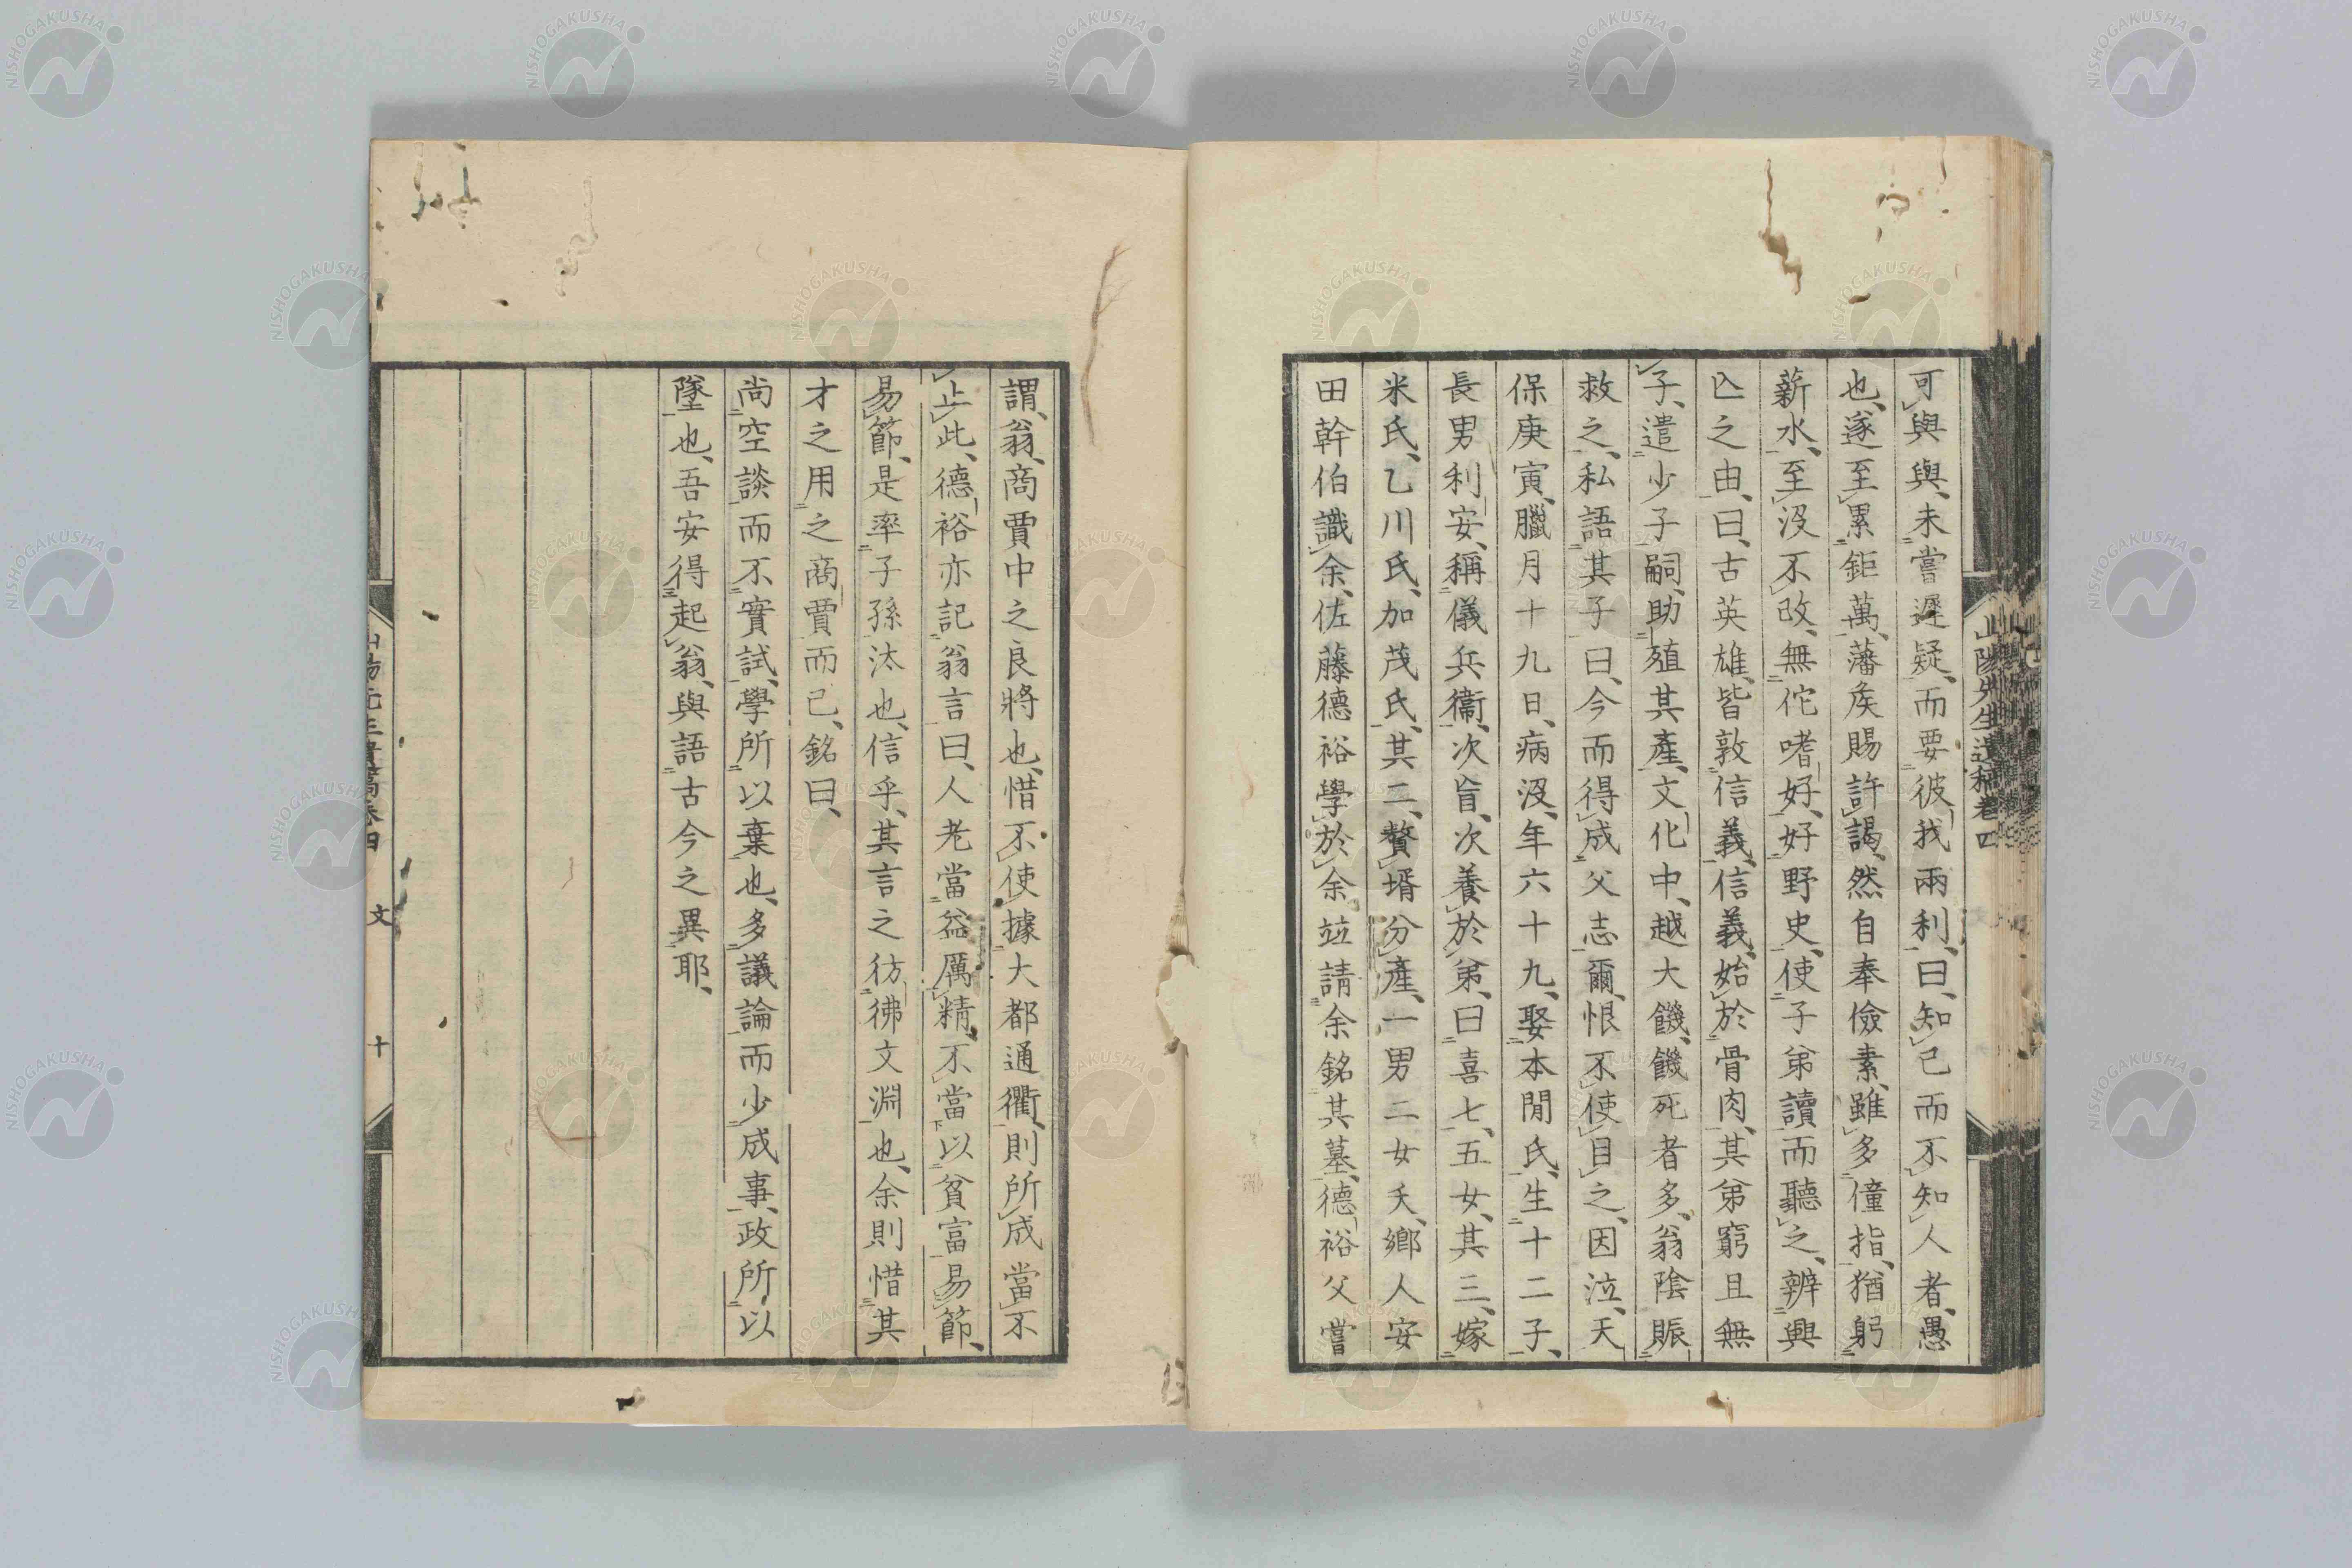 山陽先生遺稿卷四
可與與、未嘗遲疑、而要彼我兩利、曰、知己而不知人者、愚
也、遂至累鉅萬、藩矦賜許謁、然自奉儉素、雖多僮指、猶躬
薪水、至沒不改、無佗嗜好、好野史、使子弟讀而聽之、辨興
亾之由、曰、古英雄、皆敦信義、信義、始於骨肉、其弟窮且無
子、遣少子嗣、助殖其產、文化中、越大饑、饑死者多、翁陰賑
救之、私語其子曰、今而得成父志爾、恨不使目之、因泣、天
保庚寅、臘月十九日、病沒、年六十九、娶本間氏、生十二子、
長男利安、稱儀兵衞、次旨、次養於弟、曰喜七、五女、其三、嫁
米氏、乙川氏、加茂氏、其二、贅壻分產、一男二女夭、鄉人安
田幹伯識余、佐藤德裕學於余、竝請余銘其墓、德裕父嘗
謂、翁、商賈中之良將也、惜不使據大都通衢、則所成當不
止此、德裕亦記翁言曰、人老當益厲精、不當以貧富易節、
易節、是率子孫汰也、信乎、其言之彷彿文淵也、余則惜其
才之用之商賈而已、銘曰、
尚空談而不實試、學所以棄也、多議論而少成事、政所以
墜也、吾安得起翁、與語古今之異耶、
山陽先生遺稿卷四 文 十
NISHOGAKUSHA